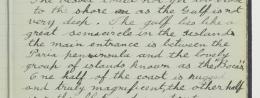 to the shore as the Gulf is not
very deep. The gulf lies like a
great semicircle in the island
the main entrance is between the
Paria peninsula and the lonely
group of islands known as the Bocas
One half of the coast is rugged
and truly magnificent, the other half